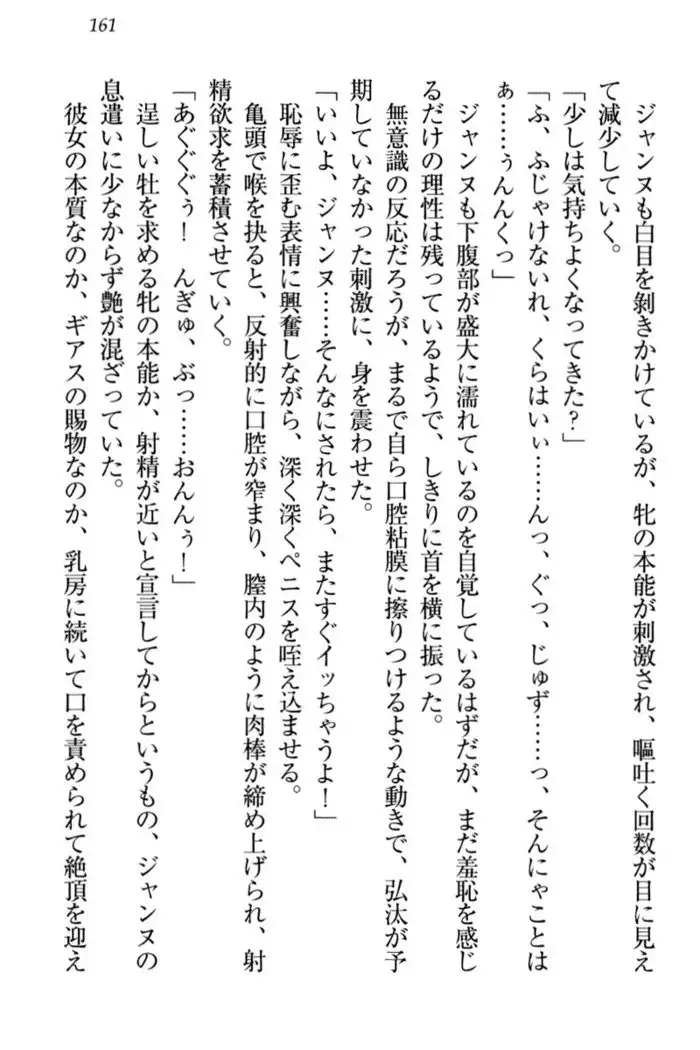 161
ジャンヌも白目を剝きかけているが、牝の本能が刺激され、嘔吐く回数が目に見え
て減少していく。
「少しは気持ちよくなってきた?」
「ふ、ふじゃけないれ、くらはいぃ……んっ、ぐっ、じゅず……っ、そんにゃことは
ぁ……ぅんんくっ」
ジャンヌも下腹部が盛大に濡れているのを自覚しているはずだが、まだ羞恥を感じ
るだけの理性は残っているようで、しきりに首を横に振った。
無意識の反応だろうが、まるで自ら口腔粘膜に擦りつけるような動きで、弘汰が予
期していなかった刺激に、身を震わせた。
「いいよ、ジャンヌ……そんなにされたら、またすぐイッちゃうよ!」
恥辱に歪む表情に興奮しながら、深く深くペニスを咥え込ませる。
亀頭で喉を抉ると、反射的に口腔が窄まり、膣内のように肉棒が締め上げられ、射
精欲求を蓄積させていく。
「あぐぐぐぅ! んぎゅ、ぶっ……おんんぅ!」
逞しい牡を求める牝の本能か、射精が近いと宣言してからというもの、ジャンヌの
息遣いに少なからず艶が混ざっていた。
彼女の本質なのか、ギアスの賜物なのか、乳房に続いて口を責められて絶頂を迎え